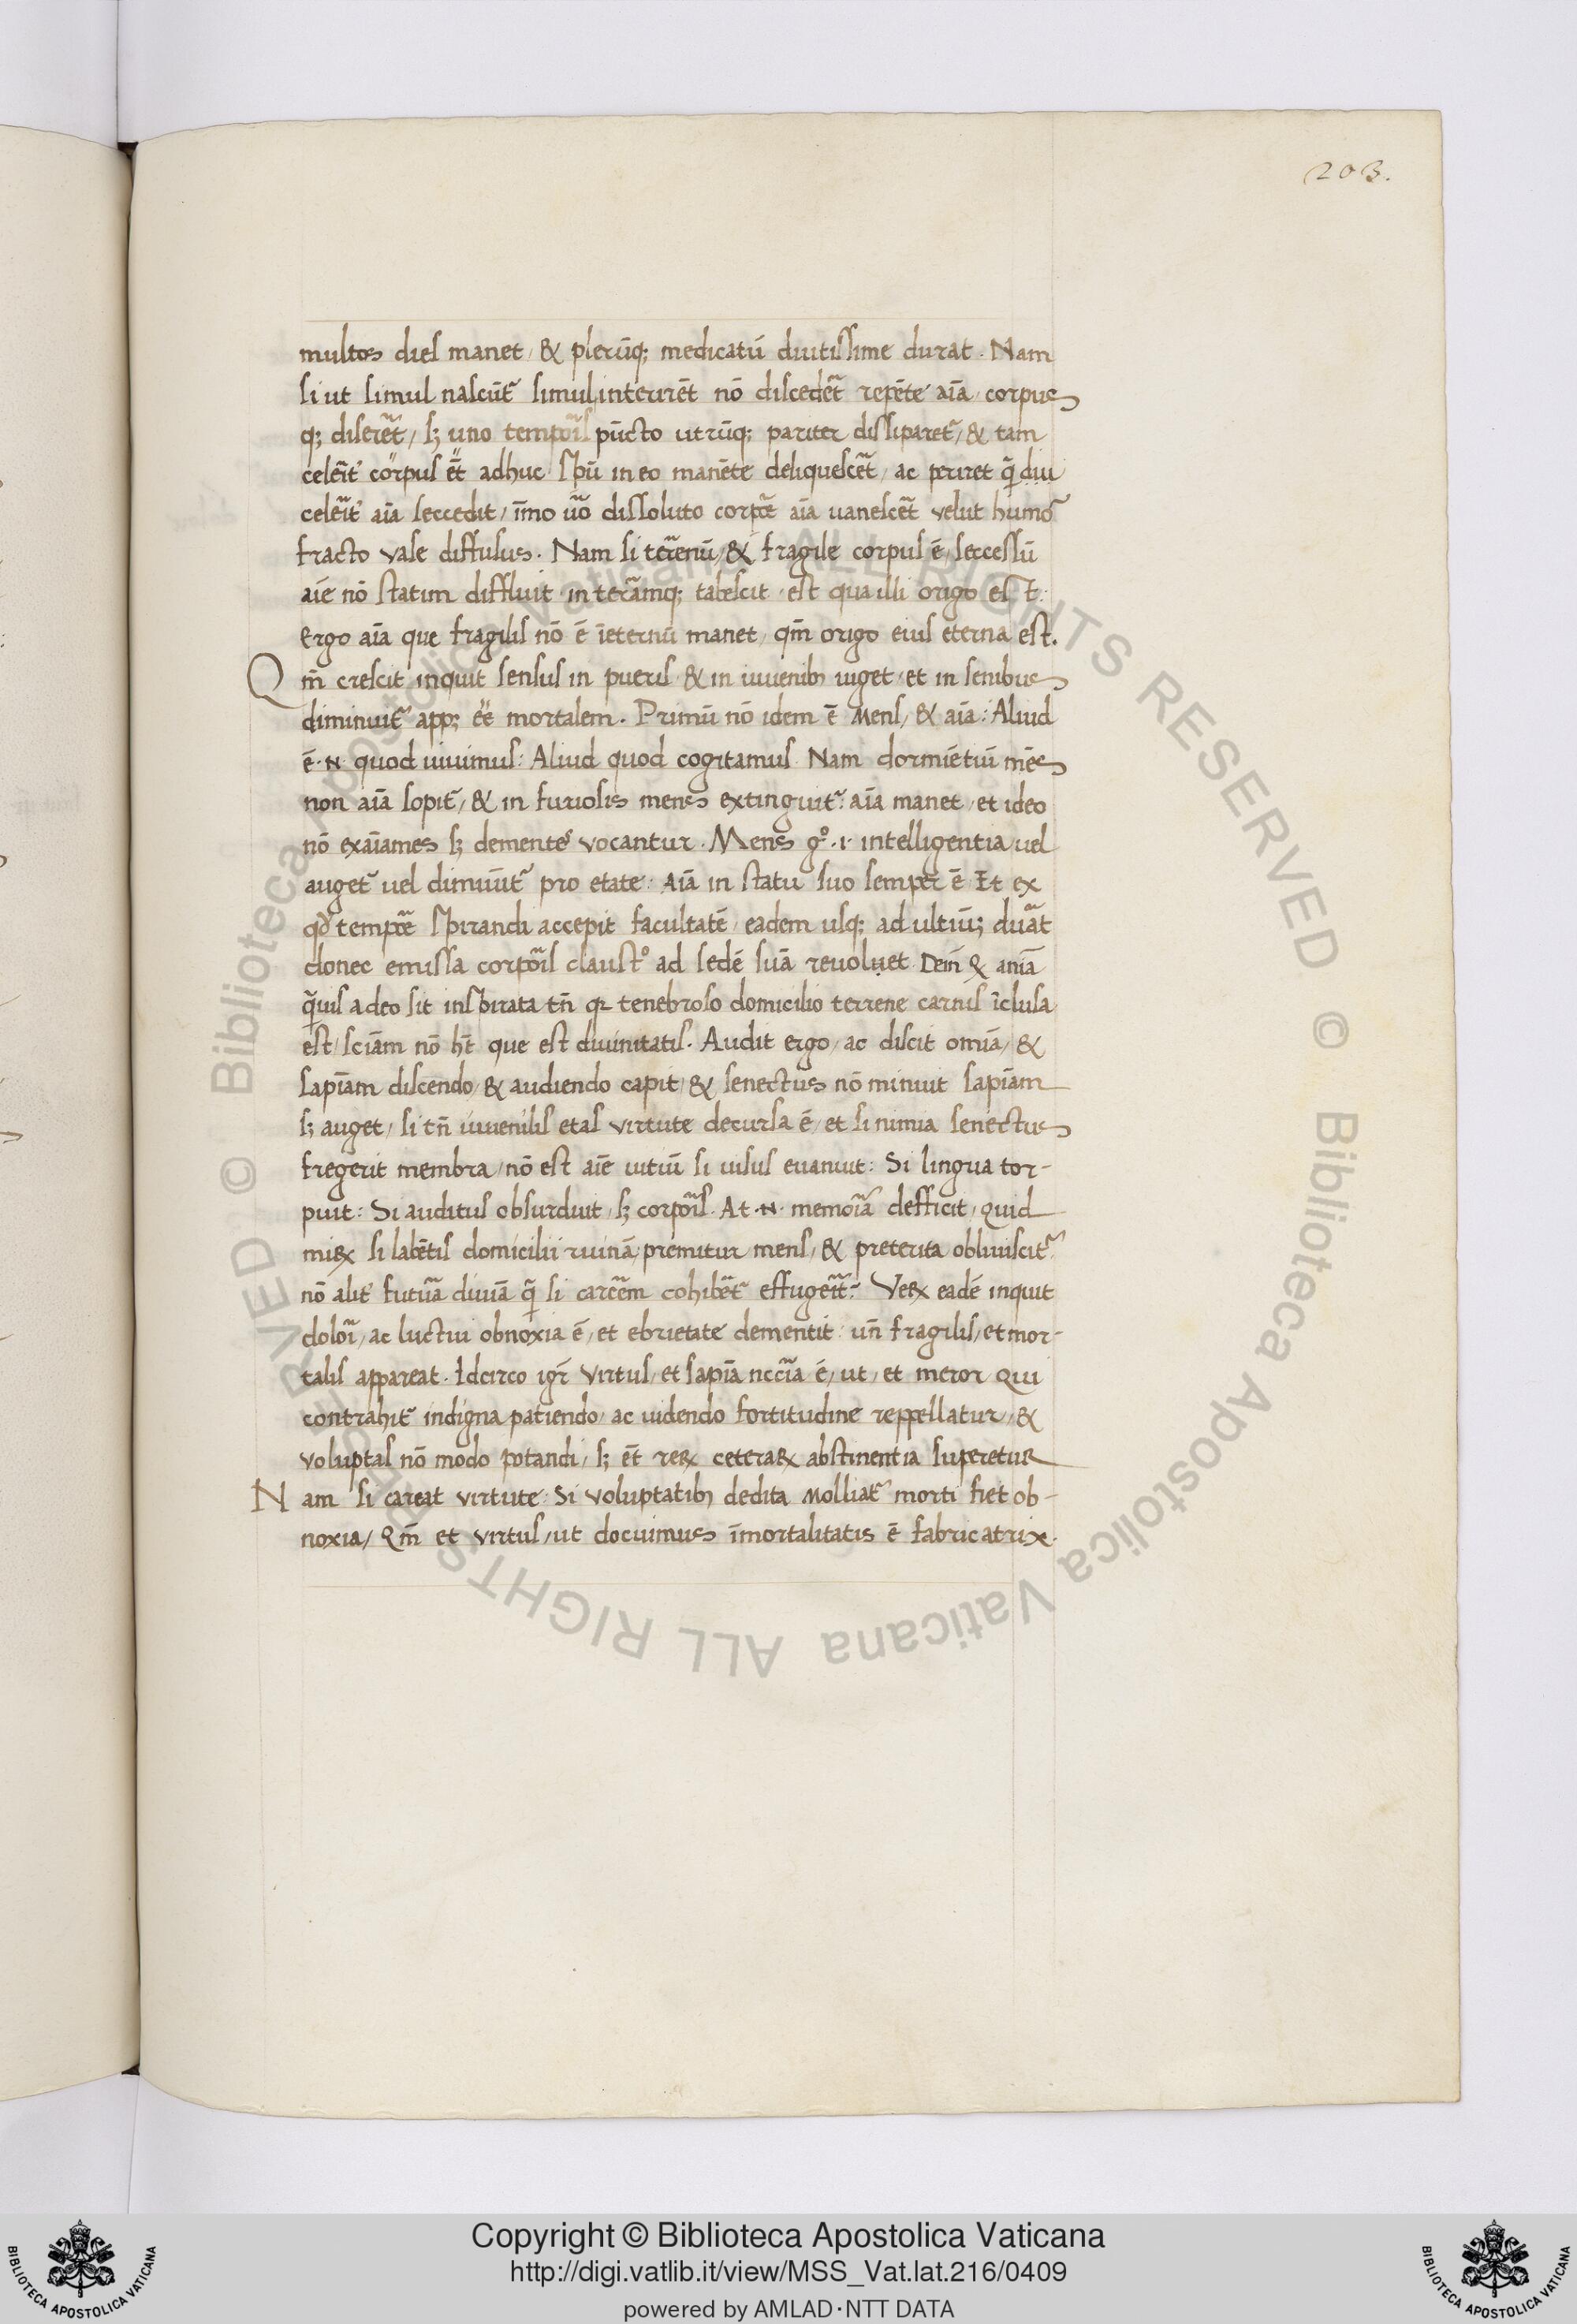 203.
multos dies manet / & plerūq; medicatū diutissime durat. Nam
si ut simul nascūt᷑ simul interirēt nō discedet᷑ repēte aīa corpus
q; diseret᷑ / sʒ uno temporis pūcto utrūq; pariter dissiparet᷑ / & tam
celerit᷑ corpus ēt adhuc spū in eo manēte deliquescet᷑ / ac periret q̄ diu
celerit᷑ aīa seccedit / īmo ūo dissoluto corpore aīa uanescet᷑ velut humor
fracto vase diffusus. Nam si terrenū / & fragile corpus ē / seccessū
aīe nō statim diffluit in terramq; tabescit est qua illi origo est:
Ergo aīa que fragilis nō ē īeternū manet / qm̄ origo eius eterna est.
Qm̄ crescit inquit sensus in pueris & in iuuenib; uiget et in senibus
diminuit᷑ app; eē mortalem. Primū nō idem ē Mens / & aīa: Aliud
ē.N. quod uiuimus: Aliud quod cogitamus Nam dormiētiū mēs
non aīa sopit᷑ / & in furiosis mens extinguit᷑ aīa manet et ideo
nō exaīames sʒ dementes vocantur. Mens gº .i. intelligentia uel
auget᷑ uel diminuit᷑ pro etate: Aīa in statu suo semper ē Et ex
qº tempore spirandi accepit facultatē eadem usq; ad ultimū; durat
donec emissa corporis claustº ad sedē suā reuoluet Dein̄ & aniā
q̄uis adeo sit inspirata tn̄ qꝛ tenebroso domicilio terrene carnis īclusa
est / sciam̄ nō ht̄ que est diuinitatis. Audit ergo / ac discit omīa / &
sapīam discendo / & audiendo capit / & senectus nō minuit sapīam
sʒ auget / si tn̄ iuuenilis etas virtute decursa ē / et si nimia senectus
fregerit membra / nō est aīe uitiū si uisus euanuit: Si lingua tor-
puit: Si auditus obsurduit / sʒ corporis. At .N. memoria defficit / quid
miꝝ si labētis domicilii ruinā premitur mens / & preterita obliuiscit᷑
nō alit᷑ futura diuīa q̄ si carcerem cohibet᷑ effugerit᷑ Veꝝ eadē inquit
dolori / ac luctui obnoxia ē / et ebrietate dementit: un̄ fragilis / et mor-
talis appareat. Idcirco igr̄ virtus / et sapīa nccīa ē / ut / et meror qui
contrahit᷑ indigna patiendo / ac uidendo fortitudine reppellatur / &
voluptas nō modo potandi / sʒ ēt reꝝ ceteraꝝ abstinentia superetur
Nam si careat virtute: Si voluptatib; dedita Molliat᷑ morti fiet ob-
noxia / Qm̄ et virtus / ut docuimus īmortalitatis ē fabricatrix.
© Biblioteca Apostolica Vaticana ALL RIGHTS RESERVED © Biblioteca Apostolica Vaticana ALL RIGHTS RESERVED
BIBLIOTECA APOSTOLICA VATICANA
Copyright © Biblioteca Apostolica Vaticana
http://digi.vatlib.it/view/MSS_Vat.lat.216/0409
powered by AMLAD·NTT DATA
BIBLIOTECA APOSTOLICA VATICANA